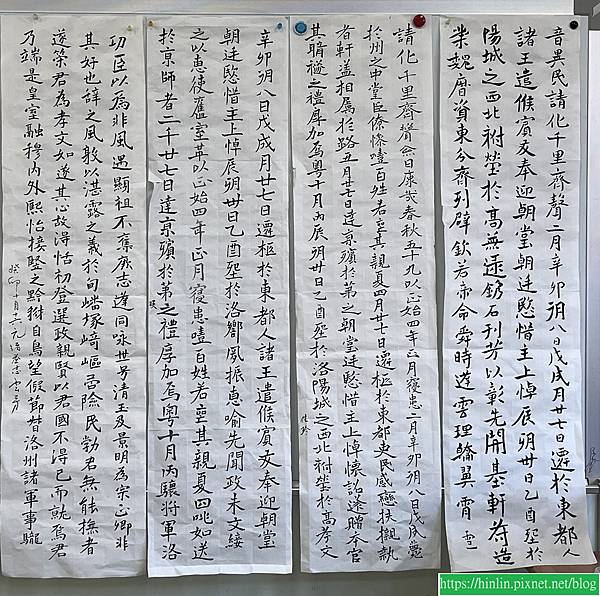 音異民請化千里齊聲二月辛卯朔八日戊戌月廿七日遷於東都人
諸王遣候賓交奉迎朝堂朝廷愍惜主上悼辰朔卅日乙酉堊於
陽城之西北祔塋於高無述銘石刊芳以彰先開基軒苻造
業魏曆資東分齊列辟欽若帝命舜時遊雲理翰翼霄
請化千里齊聲会日康哉春秋五十九以正始四年正月寢患二月辛卯朔八日戊戌薨
於州之中堂臣僚慘噎百姓若喪其親夏四月廿七日遷柩於東都吏民感戀扶櫬執
者軒盖相属於路五月廿七日達京殯於第之朝堂廷愍惜主上悼懷詔遂贈本官
其賵襚之禮厚加焉粵十月丙辰朔卅日乙酉堊於洛陽城之西北祔塋於高孝文
辛卯朔八日戊戌月廿七日遷柩於東都人諸王遣候賓交奉迎朝堂
朝廷愍惜主上悼辰朔卅日乙酉堊於洛響夙振惠喻先聞政未文綏
之以惠使舊室革以正始四年正月寢患噎百姓若喪其親夏四咷如送
於京師者二千廿七日達京殯於第之禮厚加焉粵十月丙驤將軍洛
功臣以為非風遇顯祖不奪厥志逢同咏世号清王及景明為宗正卿非
其好也辞之風敦以湛露之義於旬嶓塚崎嶇雷險民勃名無能撫者
遂榮君為孝文如遂其心故得怡初登選政親賢以君國不得已而就焉君
乃端是皇室融穆内外熙怡接豎之黔拊自烏塋假節督洛州諸軍事驪
https://hinlin.pixnet.net/blog